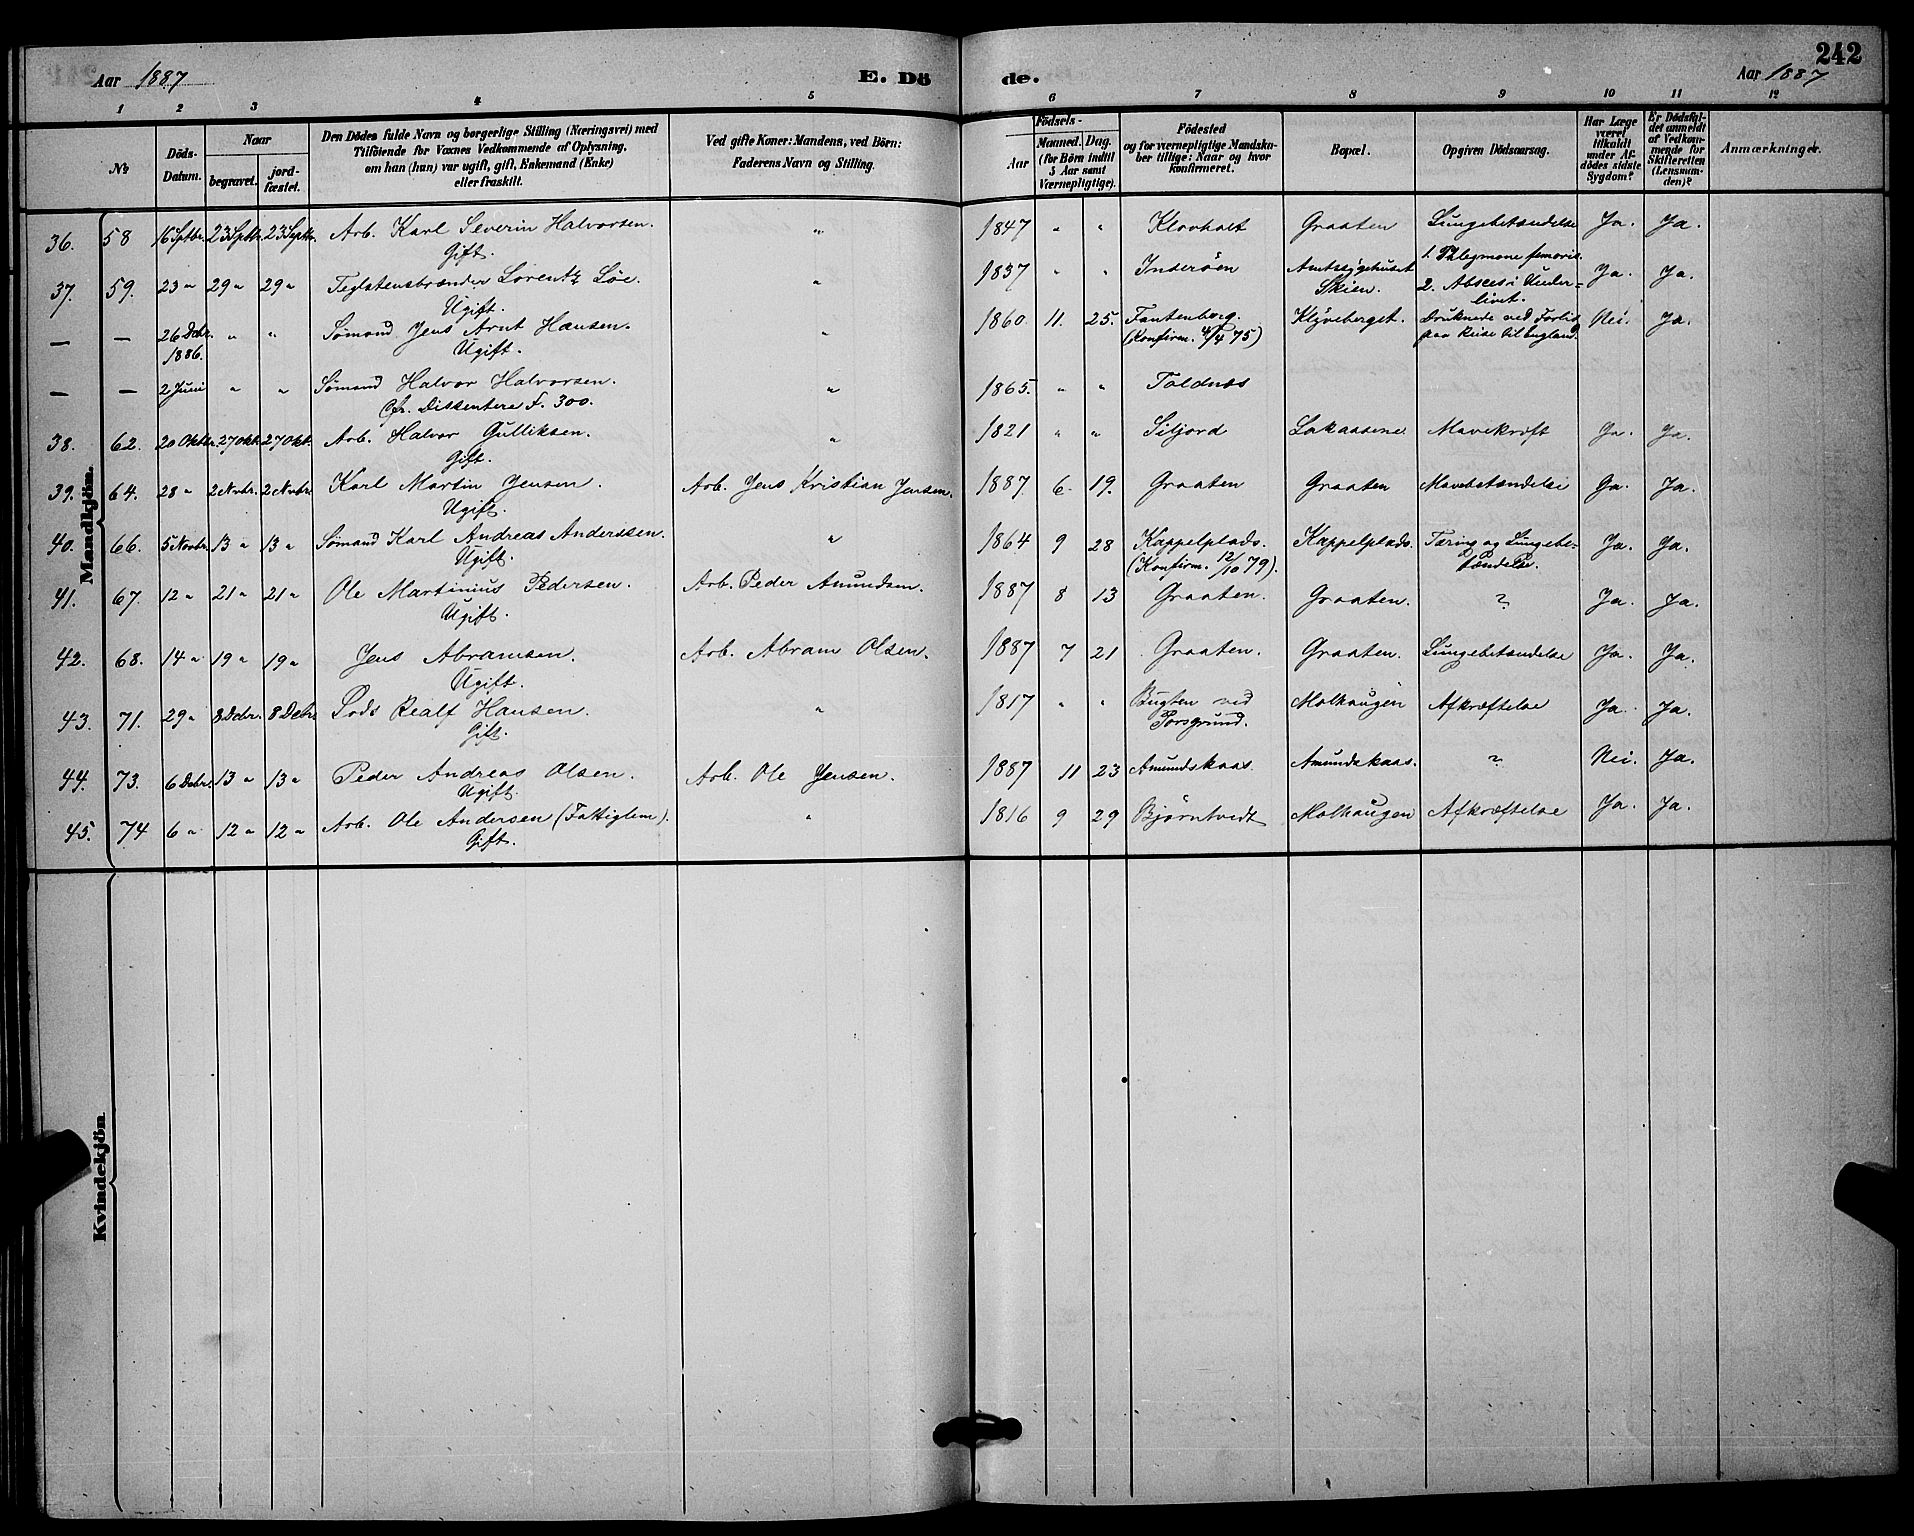 242
Aar 1887 E. Dö de. Aar 1887
1 2 3 4 5 6 7 8 9 10 11 12
№
Döds-Datum.
Naar
begravet.
jord-fæstet.
Den Dödes fulde Navn og borgerlige Stilling (Næringsvei) med
Tilföiende for Voxnes Vedkommende af Oplysning,
om han (hun) var ugift, gift, Enkemand (Enke)
eller fraskilt.
Ved gifte Koner: Mandens, ved Börn:
Faderens Navn og Stilling.
Födsels-
Aar
Maaned. Dag.
(for Börn indtil
5 Aar samt
Værnepligtige).
Födested
og for værnepligtige Mandska-
ber tillige: Naar og hvor
konfirmeret.
Bopæl.
Opgiven Dödsaarsag.
Har Læge
været
tilkaldt
under Af-
dödes sidste
Sygdom?
Er Dödsfal-
det anmeldt
af Vedkom-
mende for
Skifteretten
(Lensman-
den)?
Anmærkninger.
Mandkjön.
36. 58 16 Sptbr. 23 Sptbr. 23 Septbr. Arb. Karl Severin Halvorsen. " 1847 " " Klovholt Graaten Lungebetændelse Ja. Ja.
Gift.
37. 59. 23 " 29 " 29 " Teglstensbrænder Lorentz Löe. " 1837 " " Inderöen Amtssygehuset 1. Phlegmone femoris. Ja. Ja.
Ugift. Skien. 2. Absces i Under-
livet.
— — 26 Decbr. " " Sømand Jens Arnt Hansen. " 1860 11. 25. Fantenborg. Klyveberget. Druknede ved Forlis Nei. Ja.
1886. Ugift. (Konfirm. 4/4 75) paa Reise til England.
— — 2 Juni " " Sømand Halvor Halvorsen. " 1865. " " Toldnæs
Cfr. Dissentere F. 300.
38. 62. 20 Oktbr. 27 Okt. 27 Okt. Arb. Halvor Gulliksen. " 1821 " " Siljord Lakaasene Mavekræft Ja. Ja.
Gift.
39. 64. 28 " 2 Novbr. 2 Novbr. Karl Martin Jensen. Arb. Jens Kristian Jensen. 1887. 6. 19. Graaten Graaten Mavebetændelse Ja. Ja.
Ugift.
40. 66. 5 Novbr. 13 " 13 " Sømand Karl Andreas Anderssen. " 1864 9 28 Kappelplads. Kappelplads. Tæring og Lungebe- Ja. Ja.
Ugift. (Konfirm. 12/10 79). tændelse.
41. 67. 12 " 21 " 21 " Ole Martinius Pedersen. Arb. Peder Amundsen. 1887 8 13 Graaten. Graaten. ? Ja. Ja.
Ugift.
42. 68. 14 " 19 " 19 " Jens Abramsen. Arb. Abram Olsen. 1887 7 21 Graaten. Graaten. Lungebetændelse Ja. Ja.
Ugift.
43. 71. 29 " 8 Decbr. 8 Decbr. Lods Realf Hansen. " 1817 " " Bugten ved Molhaugen Afkræftelse Ja. Ja.
Gift. Porsgrund.
44. 73. 6 Decbr. 13 " 13 " Peder Andreas Olsen. Arb. Ole Jensen. 1887 11 23 Amundskaas. Amundskaas. ? Nei. Ja.
Ugift.
45. 74 6 " 12 " 12 " Arb. Ole Andersen (Fattiglem). " 1816 9 29 Bjørntvedt Molhaugen Afkræftelse Ja. Ja.
Gift.
Kvindekjön.